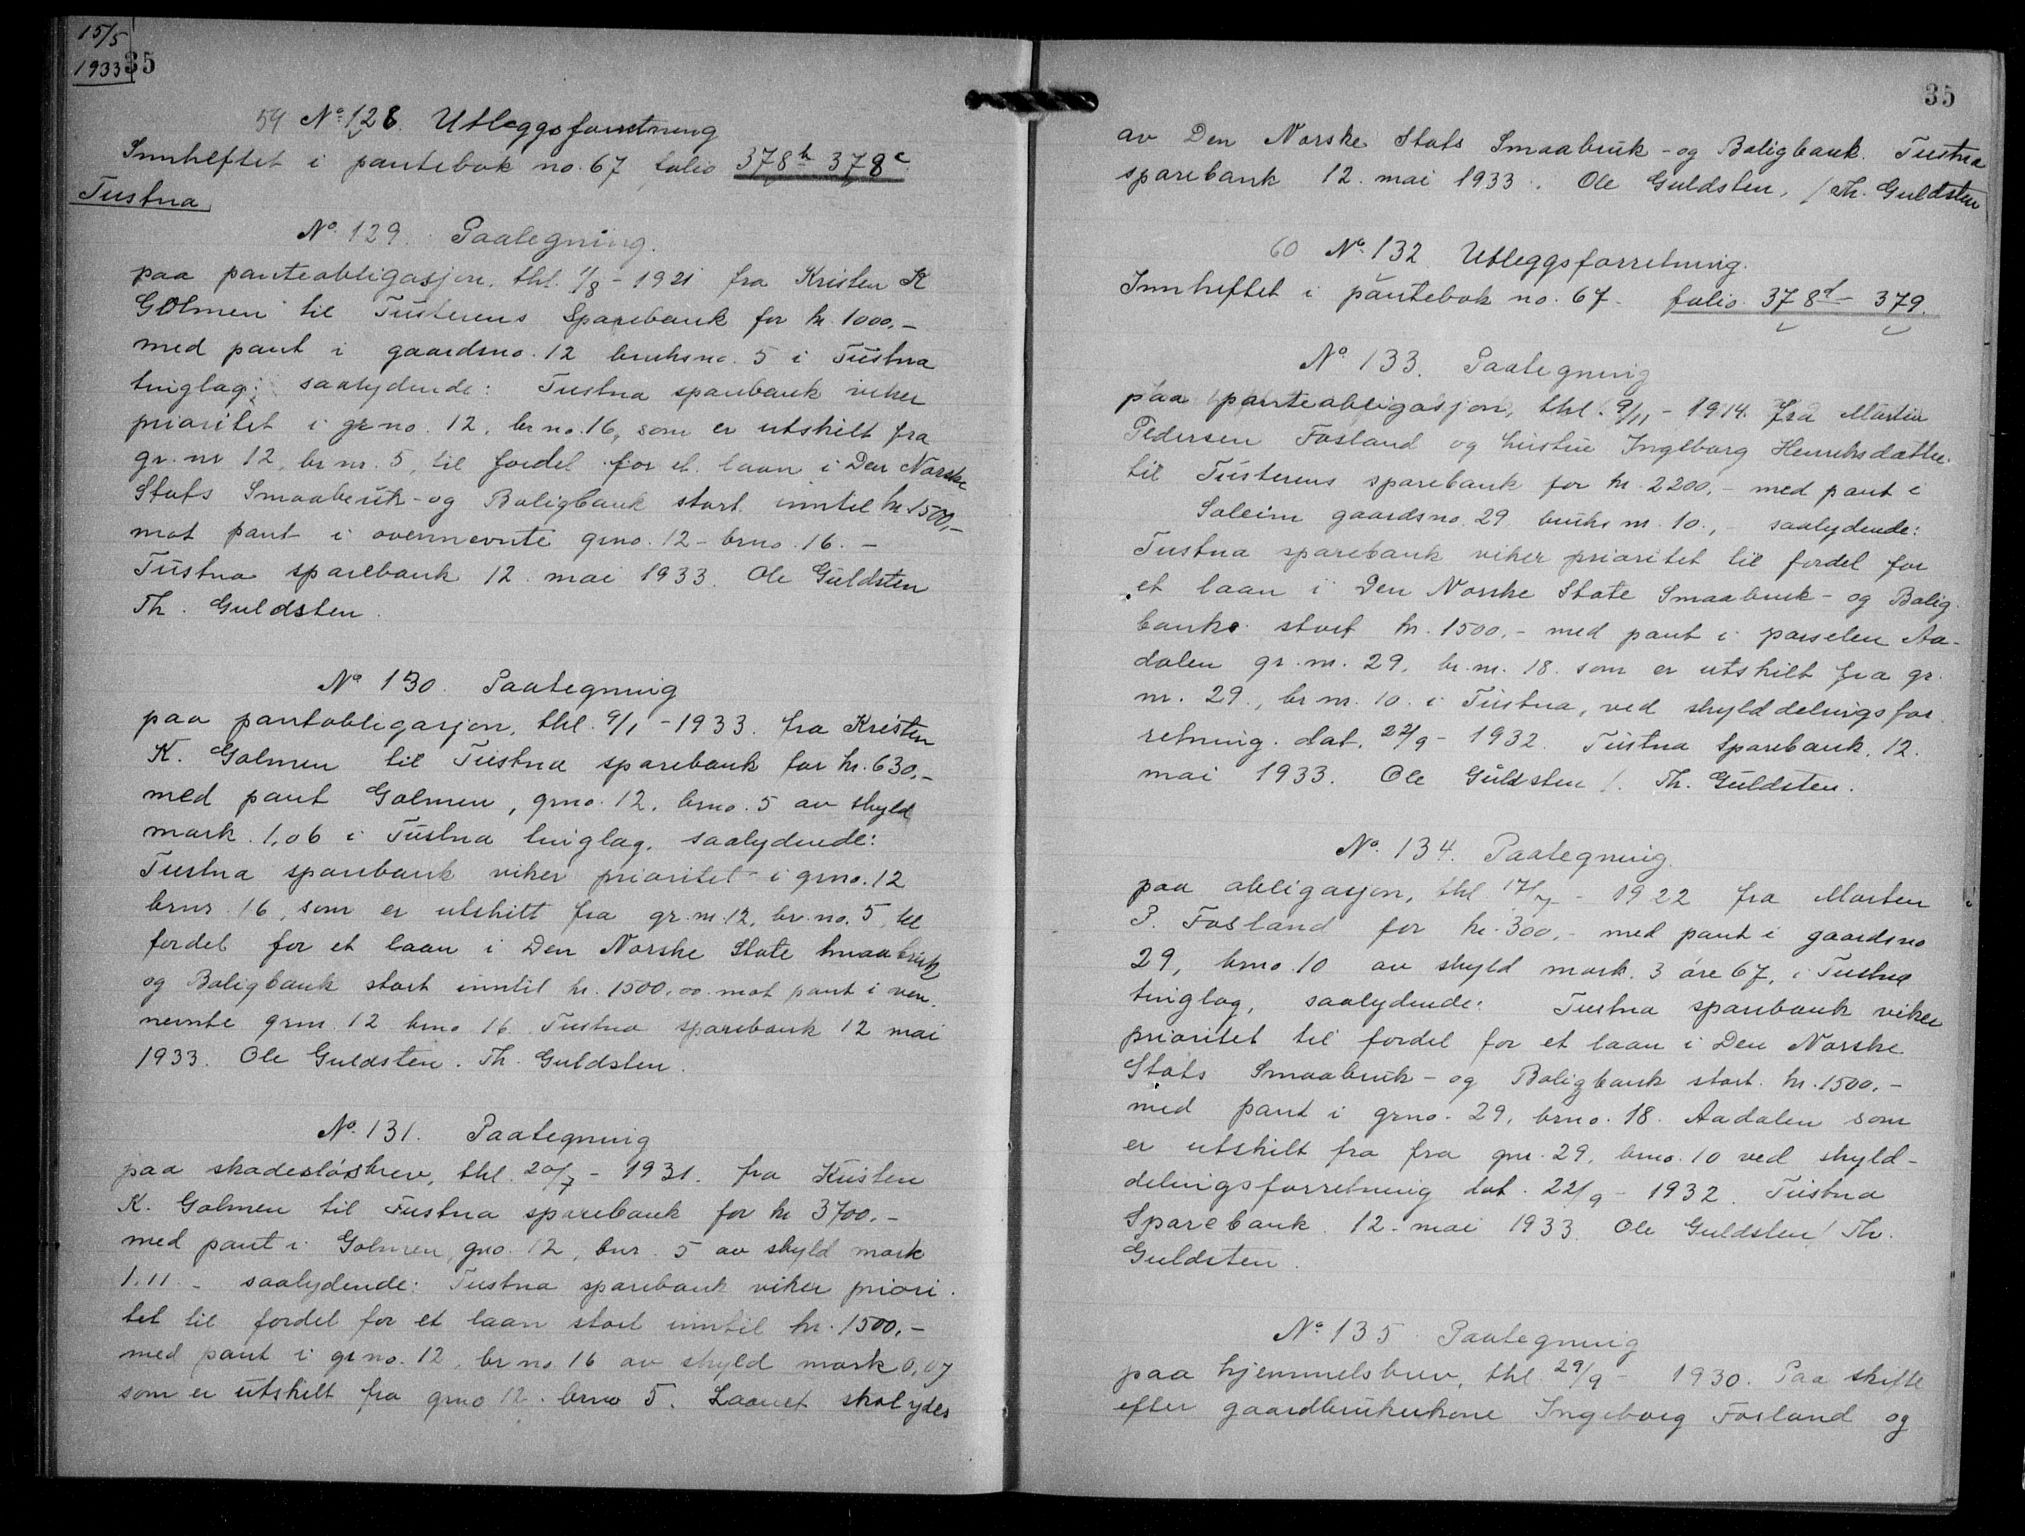 15/5
1933
35
59 No. 128. Utleggsforretning
Innheftet i pantebok no. 67 folio 378b 378c
Tustna
No. 129. Paategning.
paa panteobligasjon, thl. 1/8 - 1921 fra Kristen K
Golmen til Tusterens Sparebank for kr. 1000,-
med pant i gaardsno. 12 bruksno. 5 i Tustna
tinglag; saalydende: Tustna sparebank viker
prioritet i grno. 12, br no. 16, som er utskilt fra
gr. nr 12, br nr. 5, til fordel for et laan i Den Norske
Stats Smaabruk- og Boligbank stort inntil kr 1500,-
mot pant i ovennevnte grno. 12 - brno. 16. -
Tustna sparebank 12. mai 1933. Ole Guldsten
Th. Guldsten.
No 130. Paategning
paa pantobligasjon, thl. 9/1 - 1933. fra Kristen
K. Golmen til Tustna sparebank for kr. 630,-
med pant Golmen, grno. 12, brno. 5 av skyld
mark. 1,06 i Tustna tinglag, saalydende:
Tustna sparebank viker prioritet i grno. 12
brnr. 16, som er utskilt fra gr. nr. 12, br. no. 5, til
fordel for et laan i Den Norske Stats smaabruk
og Boligbank stort inntil kr. 1500,00 mot pant i oven.
nevnte grnr. 12 brno 16. Tustna sparebank 12 mai
1933. Ole Guldsten. Th. Guldsten.
No. 131. Paategning
paa skadesløsbrev, thl. 20/7 - 1931. fra Kristen
K. Golmen til Tustna sparebank for kr 3700.-
med pant i Golmen, gno. 12, bnr. 5 av skyld mark
1.11. - saalydende: Tustna sparebank viker priori.
tet til fordel for et laan stort inntil kr. 1500,-
med pant i gr no. 12, br no. 16 av skyld mark 0,07
som er utskilt fra grno 12. brno 5. Laanet skal ydes
35
av Den Norske Stats Smaabruk - og Boligbank. Tustna
sparebank 12. mai 1933. Ole Guldsten, / Th. Guldsten
60 No. 132 Utleggsforretning.
Innheftet i pantebok no. 67. folio 378d - 379.
No. 133. Paategning
paa panteobligasjon, thl. 9/11 - 1914. fra Martin
Pedersen Fosland og hustru Ingeborg Henriksdatter
til Tusterens sparebank for kr. 2200,- med pant i
Soleim gaardsno. 29 bruks nr. 10., - saalydende:
Tustna sparebank viker prioritet til fordel for
et laan i Den Norske Stats Smaabruk - og Bolig.
bank stort kr. 1500,- med pant i parselen Aa-
dalen gr. nr. 29, br. nr. 18. som er utskilt fra gr.
nr. 29., br nr. 10. i Tustna, ved skylddelingsfor.
retning. dat. 22/9 - 1932. Tustna Sparebank, 12.
mai 1933. Ole Guldsten /. Th. Guldsten.
No. 134. Paategning.
paa obligasjon, thl. 17/7 - 1922 fra Morten
P. Fosland for kr. 300,- med pant i gaardsno
29, brno. 10 av skyld mark. 3 øre 67, i Tustna
tinglag, saalydende: Tustna sparebank viker
prioritet til fordel for et laan i Den Norske
Stats Smaabruk - og Boligbank stort. kr. 1500,-
med pant i grno. 29, brno. 18. Aadalen som
er utskilt fra fra gnr. 29, brno. 10 ved skyld-
delingsforretning dat. 22/9 - 1932. Tustna
Sparebank. 12. mai 1933. Ole Guldsten / Th.
Guldsten.
No. 135. Paategning
paa hjemmelsbrev, thl. 29/9 - 1930. Paa skifte
efter gaardbrukerkone Ingeborg Fosland og